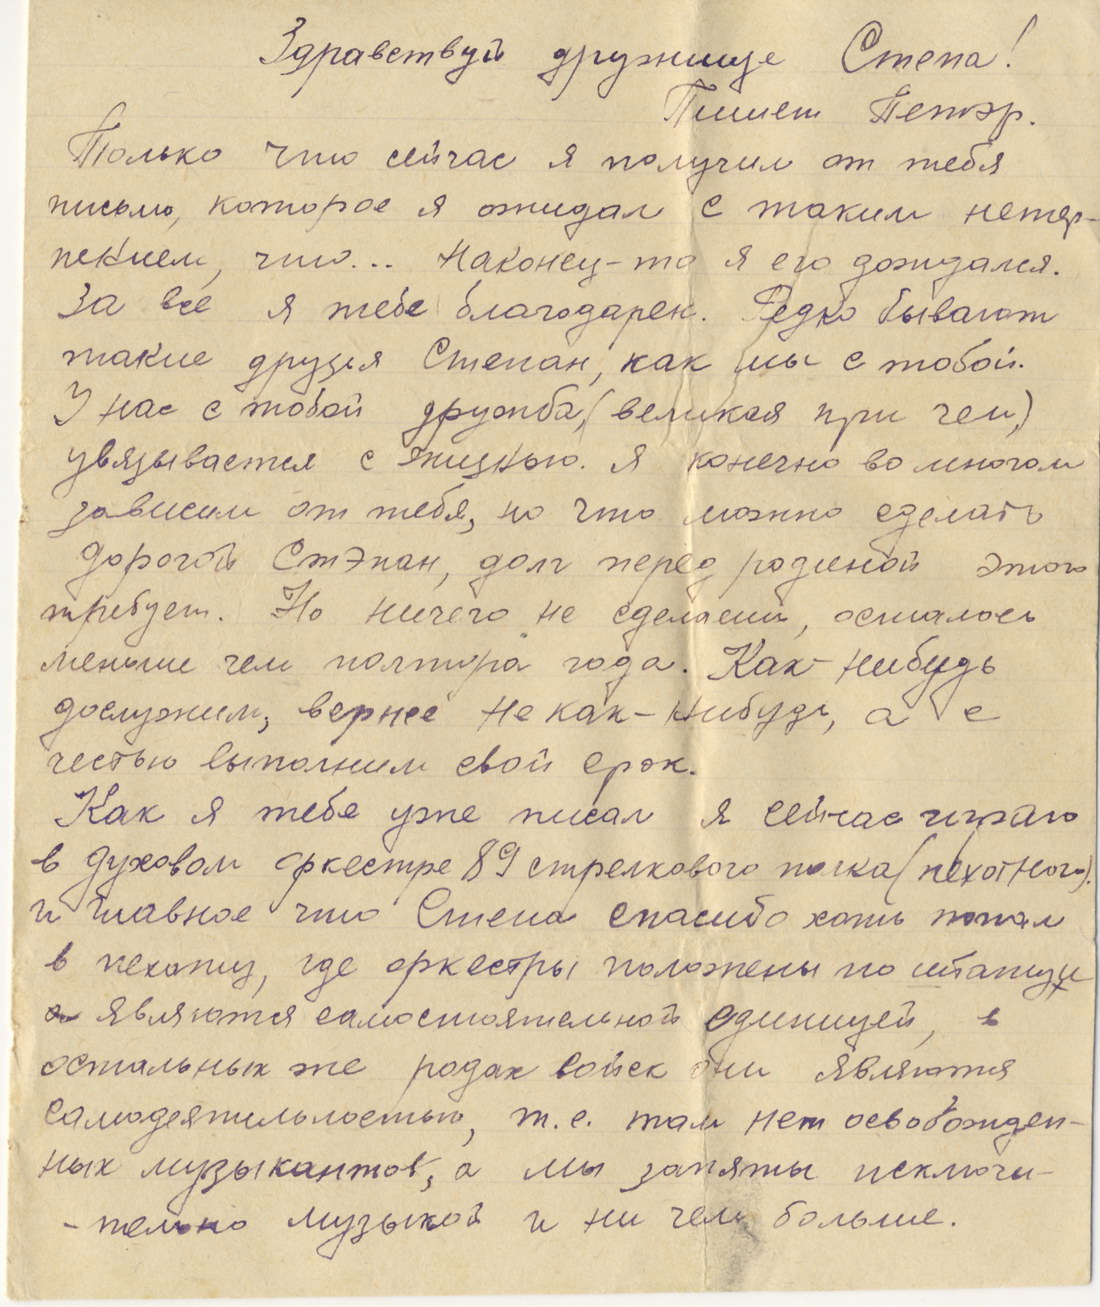 Здравствуй дружище Степа!
Пишет Петэр.
Только что сейчас я получил от тебя
письмо, которое я ожидал с таким нетер-
пением, что... Наконец-то я его дождался.
За всё я тебе благодарен. Редко бывают
такие друзья Степан, как мы с тобой.
У нас с тобой дружба, (великая при чем,)
увязывается с жизнью. Я конечно во многом
зависим от тебя, но что можно сделать
дорогой Стэпан, долг перед родиной этого
требует. Но ничего не сделаеш, осталось
меньше чем полтора года. Как-нибудь
дослужим, вернее не как-нибудь, а с
честью выполним свой срок.
Как я тебе уже писал я сейчас играю
в духовом оркестре 89 стрелкового полка (пехотного).
и главное что Степа спасибо хоть попал
в пехоту, где оркестры положены по штату и
являются самостоятельной единицей, в
остальных же родах войск они являются
самодеятильностью, т.е. там нет освобожден-
ных музыкантов, а мы заняты исключи-
-тельно музыкой и ни чем больше.